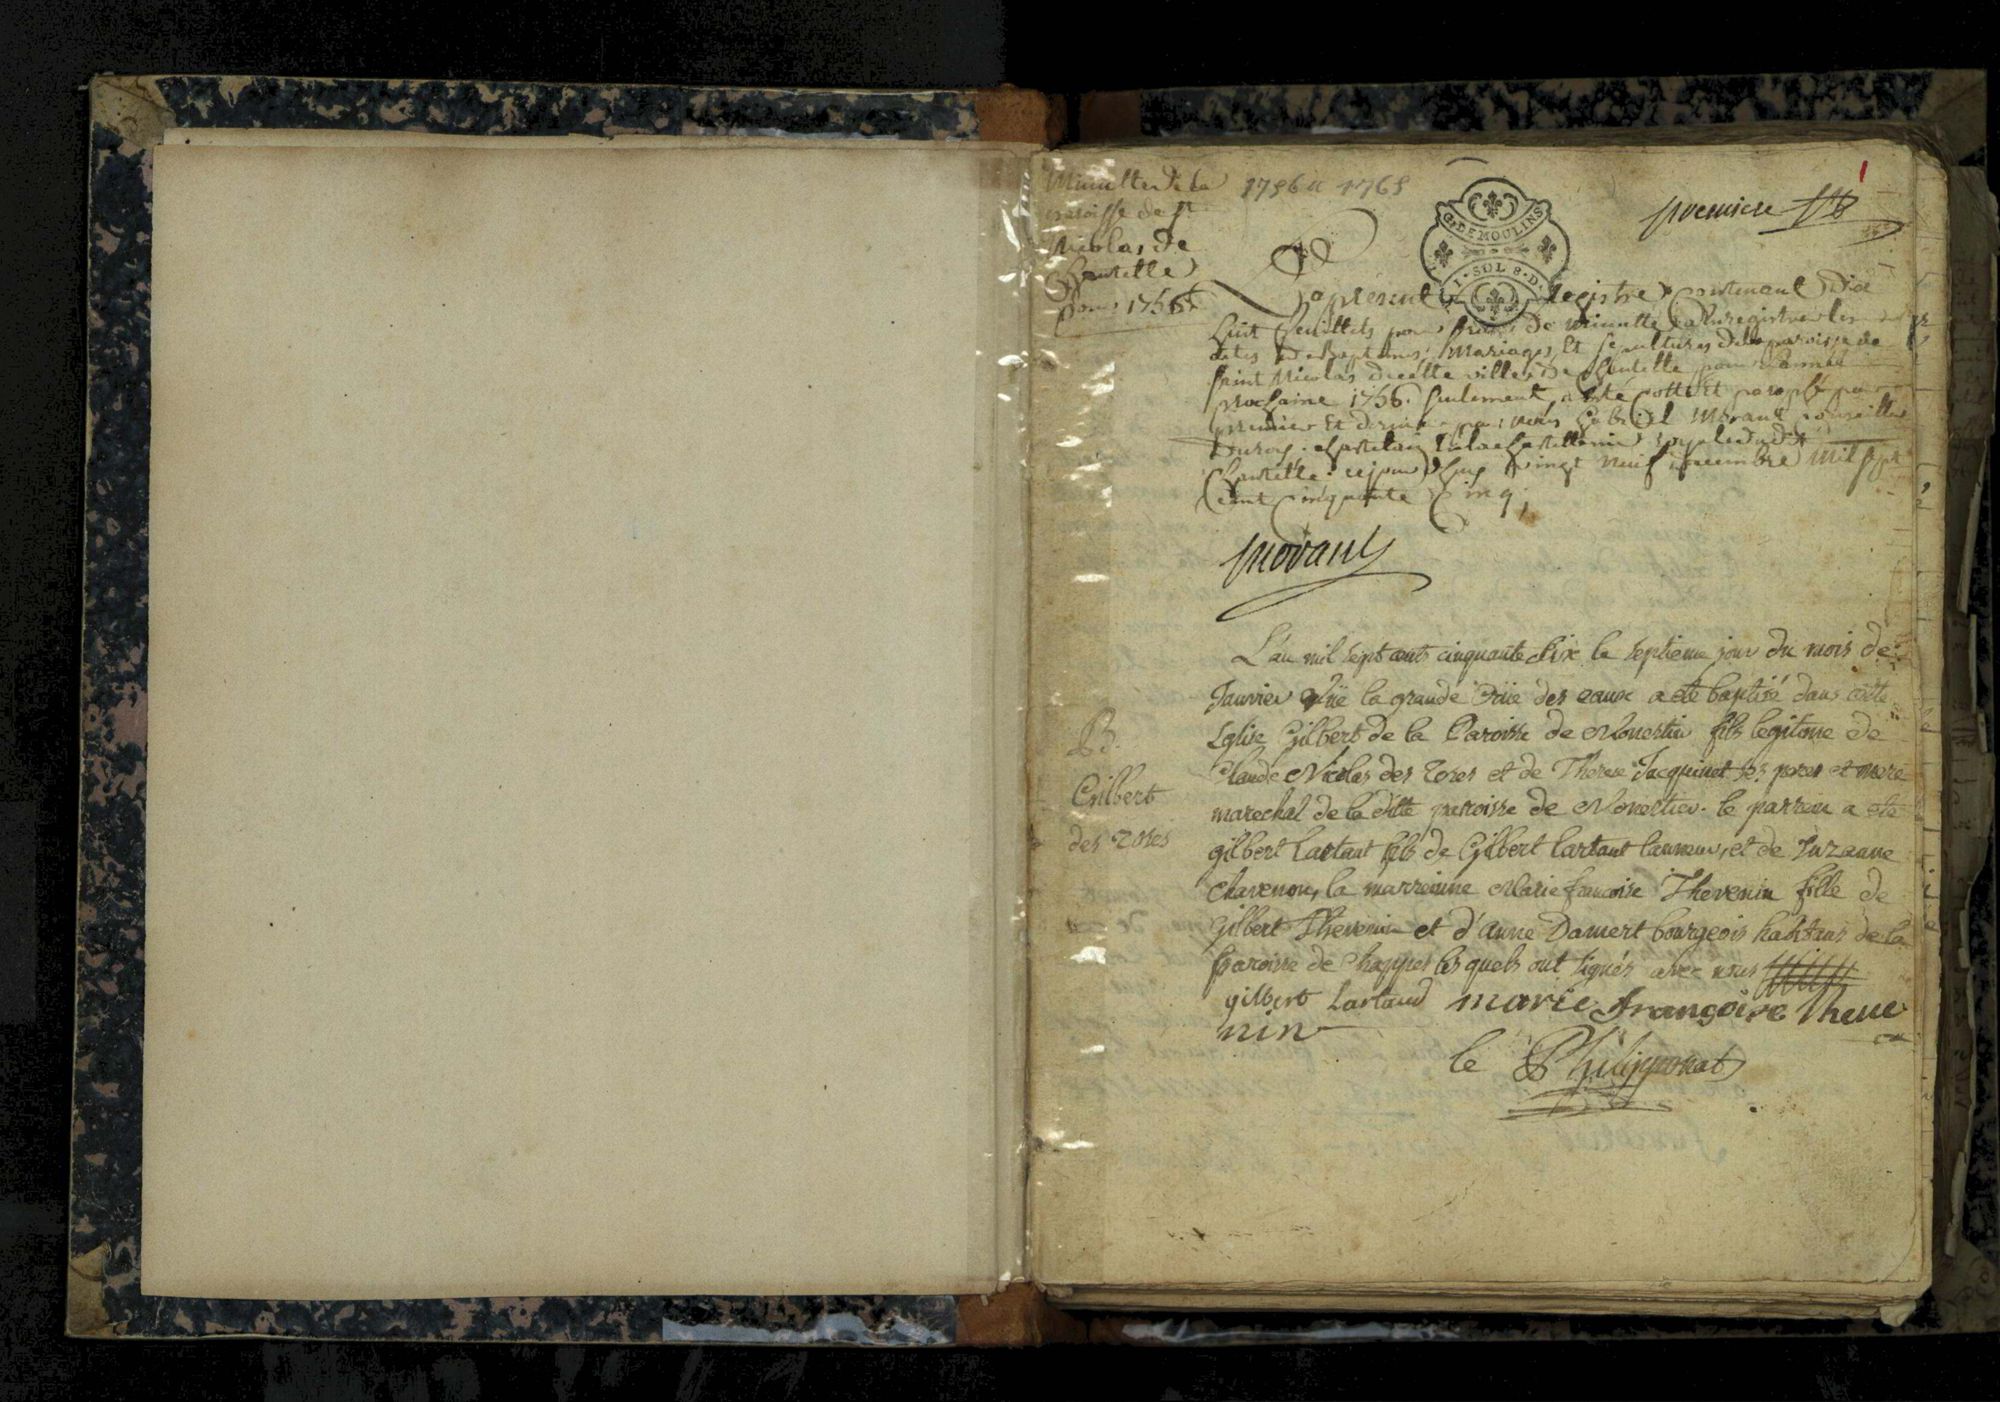 Minutte de la
paroisse de St
Nicolas de
Chantelle
pour 1756
1756 a 1765
1
premiere
G. DE MOULINS
1 · SOL 8 · D.
Le present Registre contenant dix
huit feuillets pour servir de minutte a enregistrer les
actes de Baptemes, Mariages, Et sepultures de la paroisse de
saint Nicolas de cette ville de Chantelle pour l'année
prochaine 1756. seulement, a été cotté Et paraphé par
premier Et dernier par nous Gabriel Morand Conseiller
Du roy, chastelain de la chastellenie royale dudit
Chantelle, ce jourd'huy vingt neuf decembre mil sept
cent cinquante cinq,
Morand
L'an mil sept cents cinquante six le septieme jour du mois de
Janvier vüe la grande crüe des eaux a eté baptisé dans cette
Eglise Gilbert de la Paroisse de Monestier fils legitime de
Claude Nicolas des Zores et de Therese Jacquinet ses peres et mere
marechal de la ditte paroisse de Monestier. le parrein a eté
gilbert Lartaut fils de Gilbert lartaut lanneur, et de Suzanne
chavenon, la marreinne Marie francoise Thevenin fille de
Gilbert Thevenin et d'anne Damert bourgeois habitans de la
Paroisse de Chappes les quels ont signés avec nous
B.
Gilbert
des Zores
gilbert Lartaud marie françoise theve
nin
le Philipponat